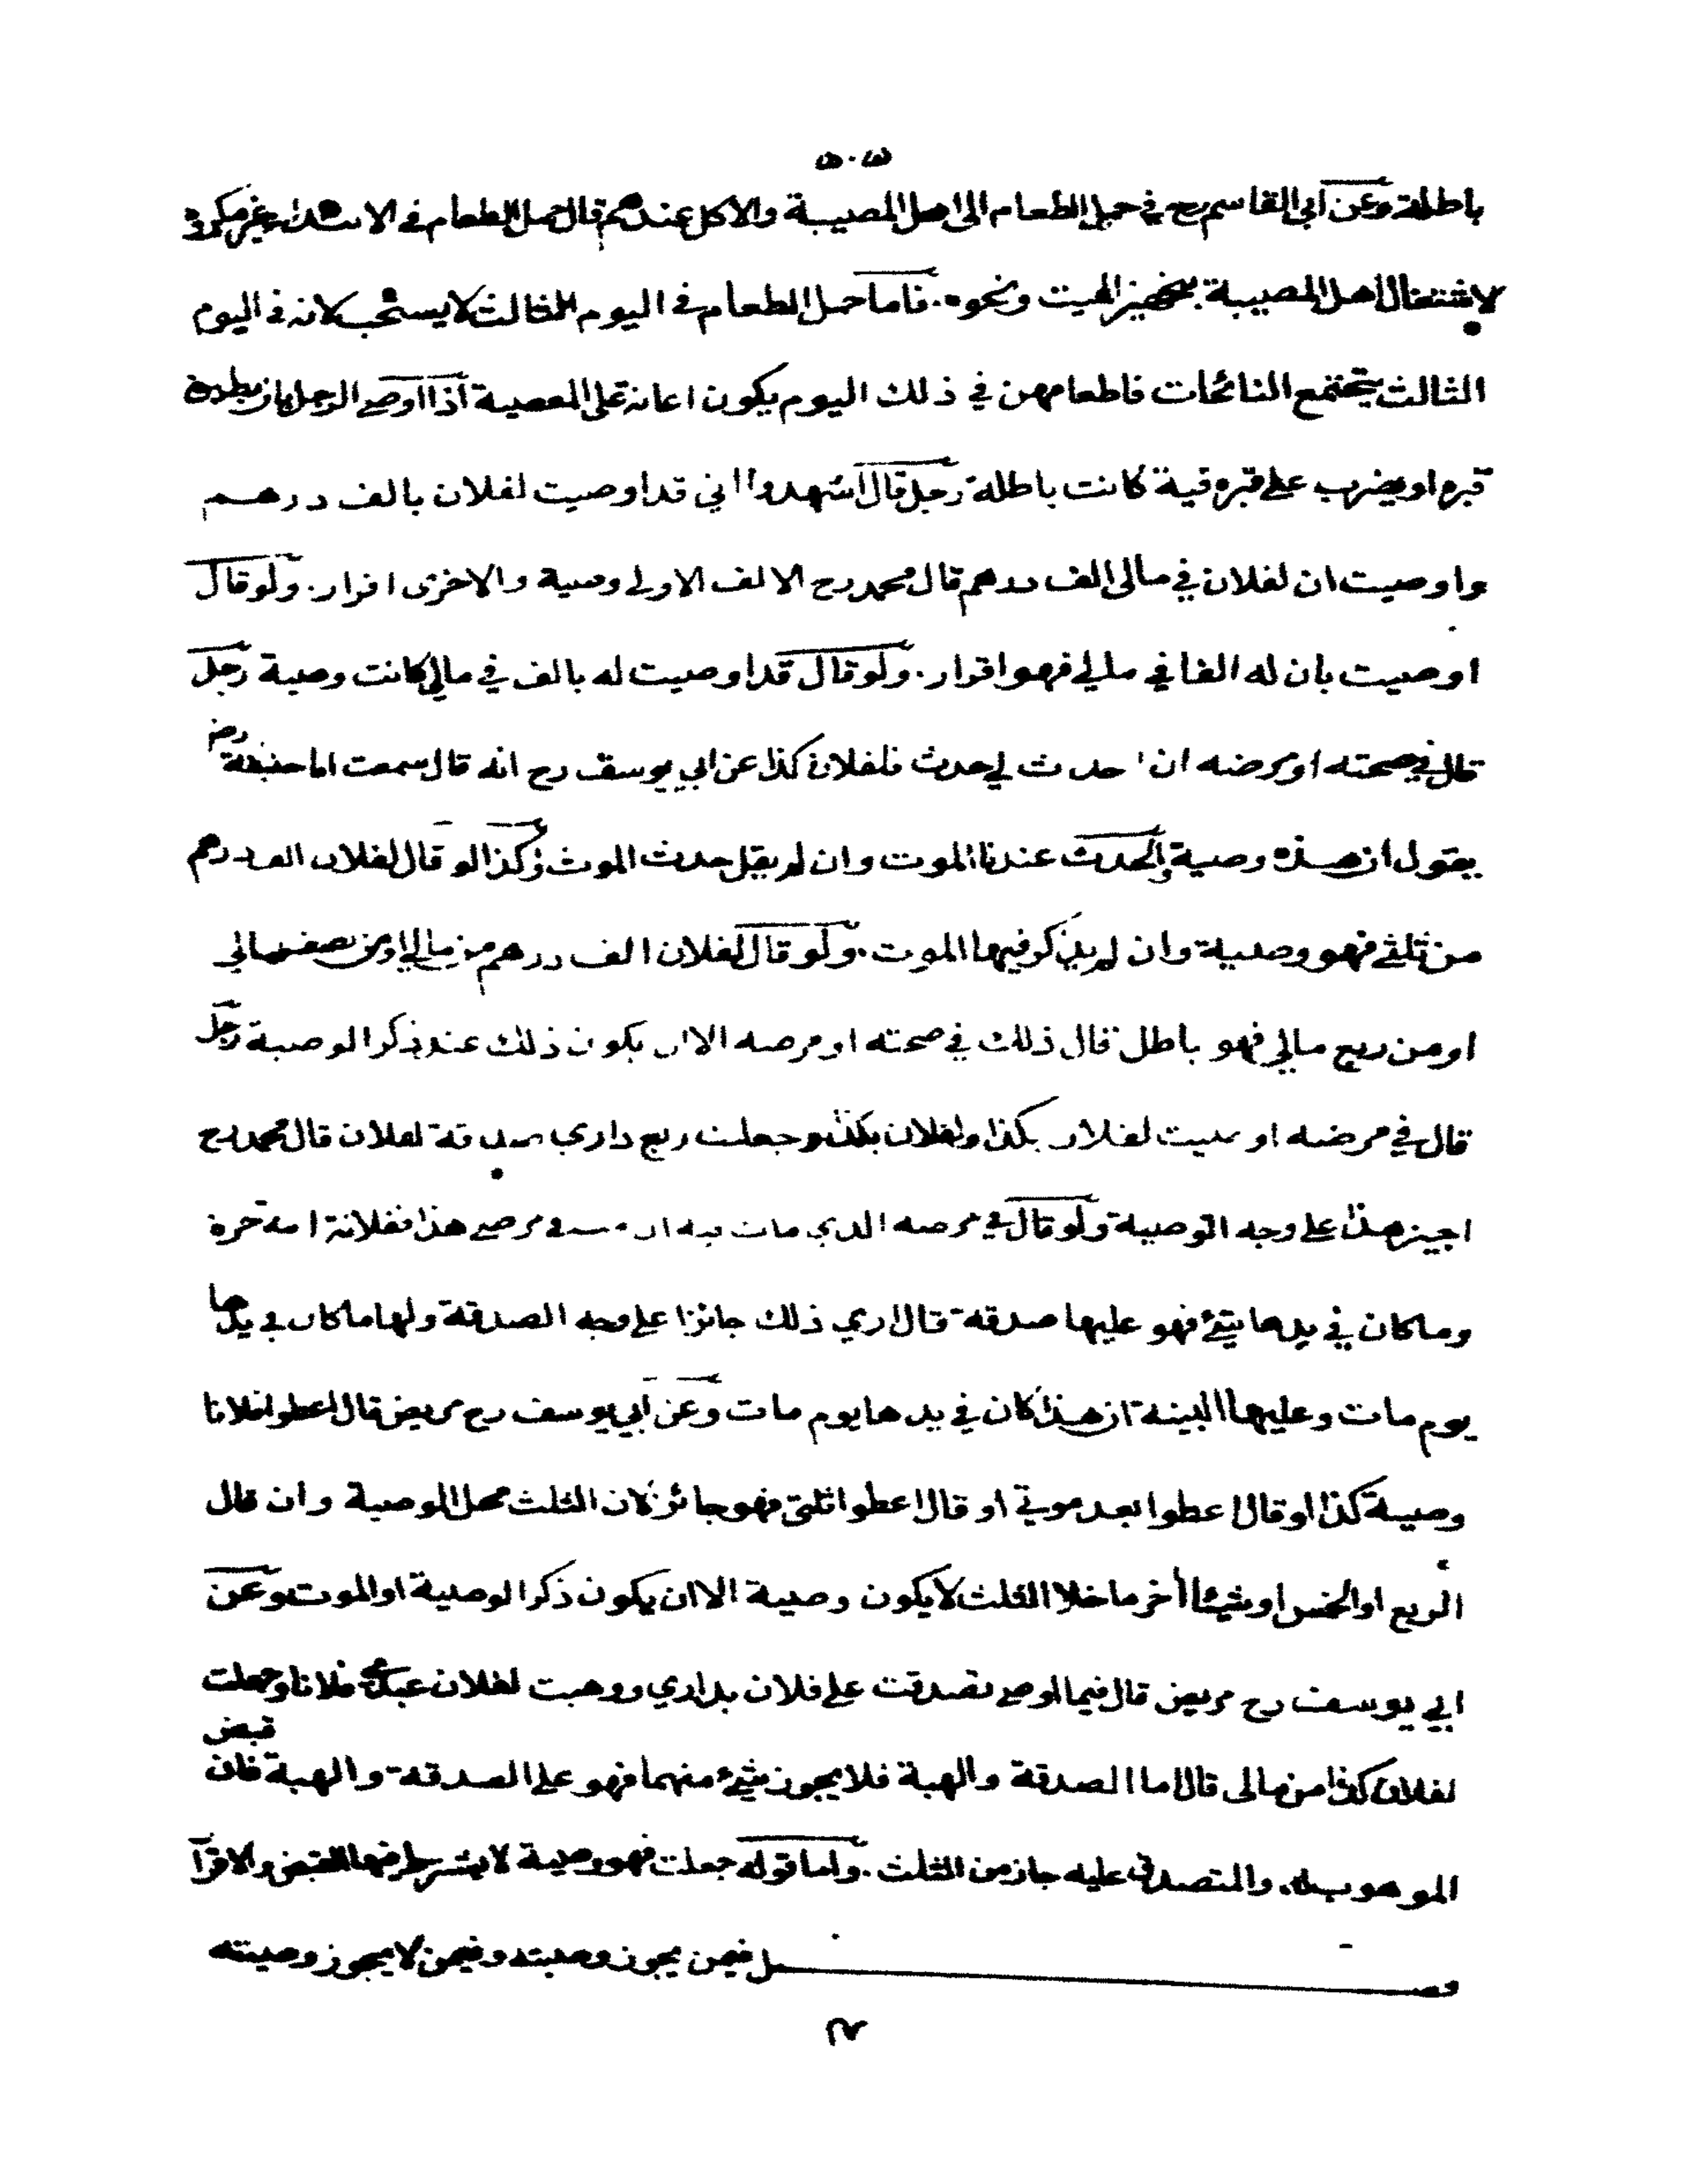 ٥٠٣
باطلة وعن ابى القاسم رح في حمل الطعام الى اهل المصيبة والاكل عندهم قال حمل الطعام فى الابتداء غير مكروه
لاشتغال اهل المصيبة بتجهيز الميت ونحوه. فاما حمل الطعام فى اليوم الثالث لا يستحب لانه فى اليوم
الثالث يجتمع النائحات فاطعامهن في ذلك اليوم يكون اعانة على المعصية اذا اوصى الرجل بان يطين
قبره او يضرب على قبره قبة كانت باطلة رجل قال اشهدوا انى قد اوصيت لفلان بالف درهم
واوصيت ان لفلان في مالى الف درهم قال محمد رح الالف الاولى وصية والاخرى اقرار. ولو قال
اوصيت بان له الفا في مالي فهو اقرار. ولو قال قد اوصيت له بالف في مالي كانت وصية رجل
قال في صحته او مرضه ان حدث لي حدث فلفلان كذا عن ابي يوسف رح انه قال سمعت ابا حنيفة رض
يقول ان هذه وصية والحدث عندنا الموت وان لم يقل حدث الموت وكذا لو قال لفلان الف درهم
من ثلثي فهو وصية وان لم يذكر فيها الموت. ولو قال لفلان الف درهم من مالي او من نصف مالي
او من ربع مالي فهو باطل قال ذلك في صحته او مرضه الا ان يكون ذلك عند ذكر الوصية رجل
قال في مرضه اوصيت لفلان بكذا ولفلان بكذا وجعلت ربع داري صدقة لفلان قال محمد رح
اجيز هذا على وجه الوصية ولو قال في مرضه الذي مات فيه ان مت فى مرضي هذا ففلانة امة حرة
وما كان في يدها شئ فهو عليها صدقة قال ارى ذلك جائزا على وجه الصدقة ولها ما كان في يدها
يوم مات وعليها البينة ان هذا كان في يدها يوم مات وعن ابي يوسف رح مريض قال اعطوا فلانا
وصية كذا او قال اعطوا بعد موتي او قال اعطوا ثلثى فهو جائز لان الثلث محل الوصية وان قال
الربع او الخمس او شيئا أخر ما خلا الثلث لا يكون وصية الا ان يكون ذكر الوصية او الموت وعن
ابي يوسف رح مريض قال فيما اوصى تصدقت على فلان بداري ووهبت لفلان عبدي فلانا وجعلت
لفلان كذا من مالى قال اما الصدقة والهبة فلا يجوز شئ منهما فهو على الصدقة والهبة فان قبض
الموهوب له والمتصدق عليه جاز من الثلث. واما قوله جعلت فهو وصية لا يشترط فيها القبض والاقرا
فصل فيمن يجوز وصيته وفيمن لا يجوز وصيته